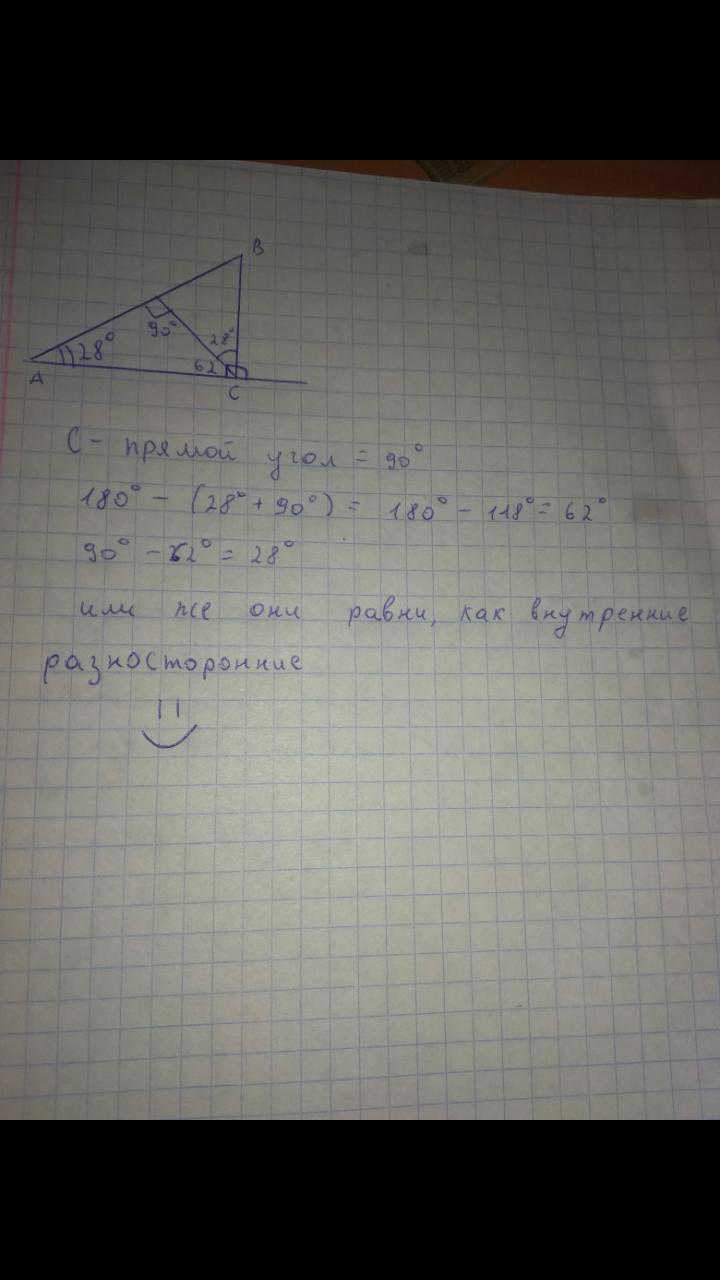 B
90°
28°
28°
62
A
C
С - прямой угол = 90°
180° - (28° + 90°) = 180° - 118° = 62°
90° - 62° = 28°
или же они равни, как внутренние
разносторонние